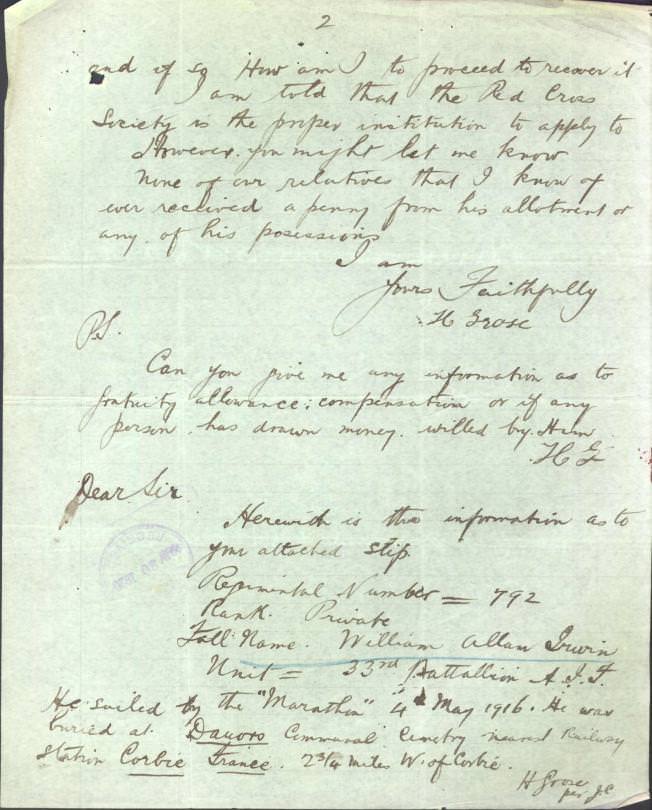 2
and if so How am I to proceed to recover it
I am told that the Red Cross
Society is the proper institution to apply to
However you might let me know
None of our relatives that I know of
ever received a penny from his allotment or
any of his posessions
I am
Yours Faithfully
H Grose
P.S.
Can you give me any information as to
gratuity allowance; compensation or if any
person has drawn money willed by Him
H G
Dear Sir
Herewith is the information as to
your attached slip
Regimental Number = 792
Rank. Private
Full Name. William Allan Irwin
Unit = 33rd Battallion A.I.F.
He sailed by the "Marathon" 4th May 1916. He was
buried at Daours Communal Cemetry nearest Railway
station Corbie France. 2 3/4 miles W. of Corbie.
H Grose
per J.C